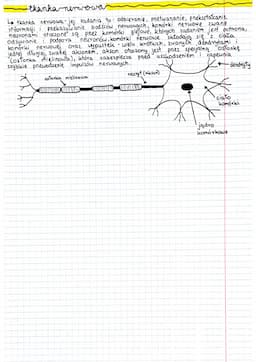 tkanka nerwowa
↳ tkanka nerwowa- jej zadania to: odbieranie, przetwarzanie, przekształcanie
informacji i przekazywanie bodźców nerwowych, komórki nerwowe zwane
neuronami otoczone są przez komórki glejowe, których zadaniem jest ochrona,
odżywianie i podpora neuronów. komórki nerwowe składają się z ciała
komórki nerwowej oraz wypustek - wielu krótkich, zwanych dendrytami i
jednej długiej zwanej aksonem, akson otoczony jest przez specjalną osłonkę
(osłonka mielinowa), która zabezpiecza przed uszkodzeniem i zapewnia
szybkie przewodzenie impulsów nerwowych.
dendryty
osłonka mielinowa
neuryt (akson)
ciało
komórki
jądro
komórkowe